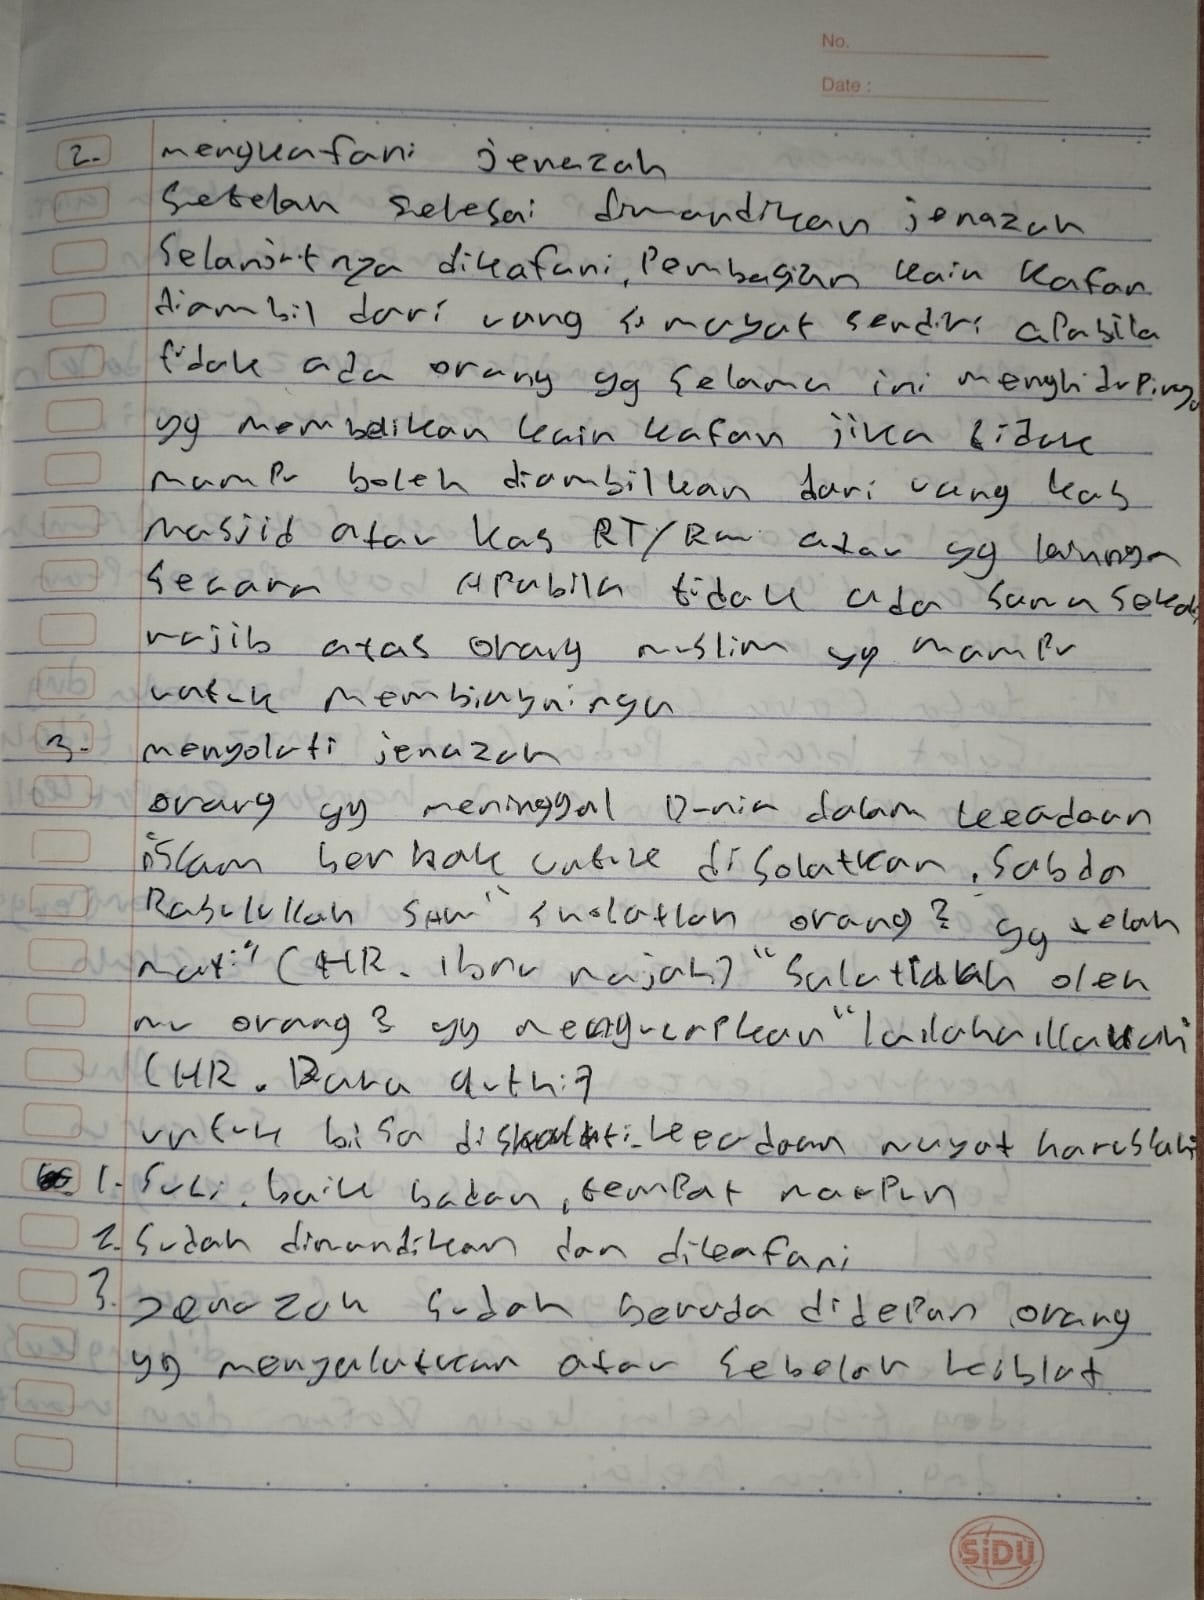 No.
Date :
2. mengkafani jenazah
Setelah selesai dimandikan jenazah
Selanjutnya dikafani, Pembagian kain kafan
diambil dari uang si mayat sendiri apabila
tidak ada orang yg selama ini menghidupinya
yg membelikan kain kafan jika tidak
mampu boleh diambilkan dari uang kas
masjid atau kas RT/RW atau yg lainnya
secara apabila tidak ada sama sekali
wajib atas orang muslim yg mampu
untuk membiayainya
3. menyolati jenazah
orang yg meninggal Dunia dalam keadaan
islam berhak untuk disolatkan, sabda
Rasulullah SAW "sholatlah orang2 yg telah
mati" (HR. Ibnu majah) "Salatidlah oleh
mu orang2 yg mengucapkan "lailahaillallah
(HR. Dara quthi)
untuk bisa disholati keadaan mayat harus
1. Suci, baik badan, tempat maupun
2. Sudah dimandikan dan dikafani
3. Jenazah sudah berada didepan orang
yg menyalatkan atau sebelah kiblat
SiDU